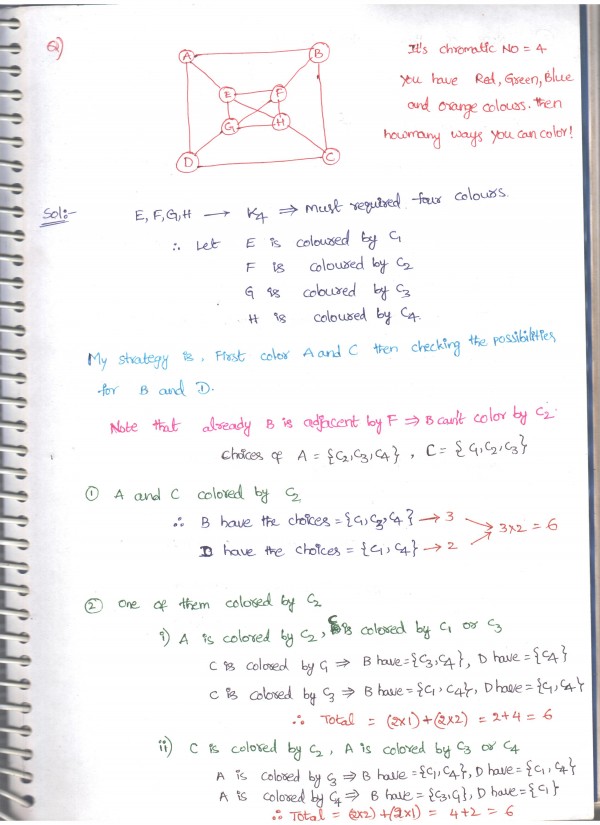 Q)
A
B
E
F
G
H
D
C
It's chromatic NO = 4
You have Red, Green, Blue
and orange colours. then
howmany ways you can color!
Sol:-
E, F, G, H → K4 ⇒ Must required four colours.
∴ Let E is coloured by C1
F is coloured by C2
G is coloured by C3
H is coloured by C4.
My strategy is, First color A and C then checking the possibilities
for B and D.
Note that already B is adjacent by F ⇒ B can't color by C2.
Choices of A = {C2, C3, C4}, C = {C1, C2, C3}
① A and C colored by C2
∴ B have the choices = {C1, C3, C4} → 3
D have the choices = {C1, C4} → 2
3×2 = 6
② One of them colored by C2
i) A is colored by C2, C is colored by C1 or C3
C is colored by C1 ⇒ B have = {C3, C4}, D have = {C4}
C is colored by C3 ⇒ B have = {C1, C4}, D have = {C1, C4}
∴ Total = (2×1)+(2×2) = 2+4 = 6
ii) C is colored by C2, A is colored by C3 or C4
A is colored by C3 ⇒ B have = {C1, C4}, D have = {C1, C4}
A is colored by C4 ⇒ B have = {C3, C1}, D have = {C1}
∴ Total = (2×2)+(2×1) = 4+2 = 6